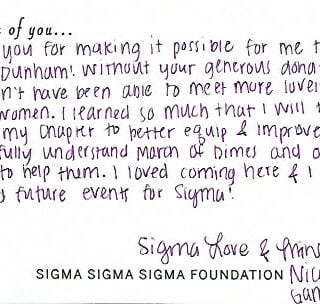 of you...
you for making it possible for me t
Dunham! Without your generous dona
n't have been able to meet more lovel
women. I learned so much that I will t
my chapter to better equip & improve
fully understand March of Dimes and o
to help them. I loved coming here & I
future events for Sigma!
Sigma Love &
SIGMA SIGMA SIGMA FOUNDATION Nic
Gam